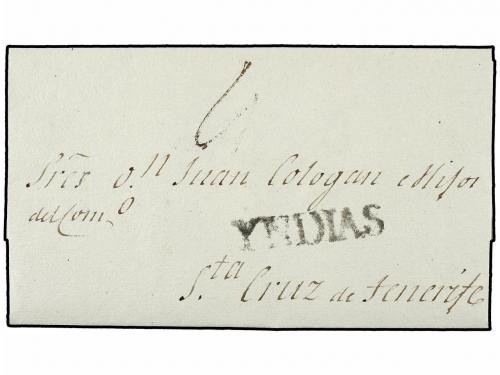 6
Sres Dn Juan Cologan e Hijos
del Com.o
YNDIAS
S.ta Cruz de Tenerife